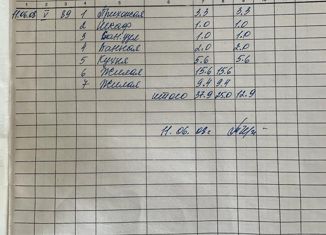 1 2 3 4 5 6 7 8 9
11.06.08 V 89 1 Прихожая 3,3 3,3
2 Шкаф 1.0 1.0
3 Сан.узел 1.0 1.0
4 Ванная 2.0 2.0
5 Кухня 5.6 5.6
6 Жилая 15.6 15.6
7 Жилая 9.4 9.4
итого 37.9 25.0 12.9
11. 06. 08 г.